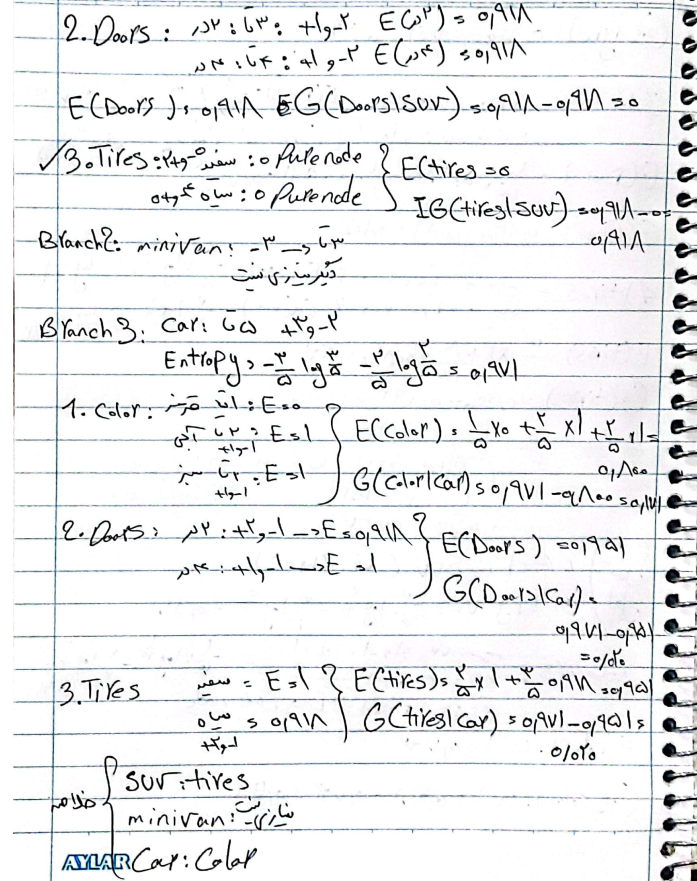 2. Doors : ۲در : ۳تا : +۱و-۲ E(۲در) = ۰,۹۱۸
۴در : ۳تا : +۱و-۲ E(۴در) = ۰,۹۱۸
E(Doors) = ۰,۹۱۸ G(Doors|SUV) = ۰,۹۱۸-۰,۹۱۸ = ۰
✓3. Tires : سفید : ۰ Pure node
سیاه : ۰ Pure node
E(tires = ۰
IG(tires|SUV) = ۰,۹۱۸-۰ =
۰,۹۱۸
Branch2: minivan: -۳ → ۳تا
دیگر نیازی نیست
Branch 3: Car: ۵تا +۳و-۲
Entropy = -۳/۵ log ۳/۵ - ۲/۵ log ۲/۵ = ۰,۹۷۱
1. Color : قرمز : E=۰
۲تا آبی : E=۱
+۱و-۱
۲تا سبز : E=۱
+۱و-۱
E(Color) = ۱/۵ x۰ + ۲/۵ x۱ + ۲/۵ x۱ =
۰,۸۰۰
G(Color|Car) = ۰,۹۷۱-۰,۸۰۰ = ۰,۱۷۱
2. Doors : ۲در : +۲و-۱ → E=۰,۹۱۸
۴در : +۱و-۱ → E=۱
E(Doors) = ۰,۹۵۱
G(Doors|Car) =
۰,۹۷۱-۰,۹۵۱
=۰/۰۲۰
3. Tires سفید = E=۱
سیاه = ۰,۹۱۸
+۲و-۱
E(tires) = ۲/۵ x ۱ + ۳/۵ ۰,۹۱۸ = ۰,۹۵۱
G(tires|car) = ۰,۹۷۱-۰,۹۵۱ =
۰/۰۲۰
خلاصه
SUV : tires
minivan : نیازی نیست
Car : Color
AYLAR